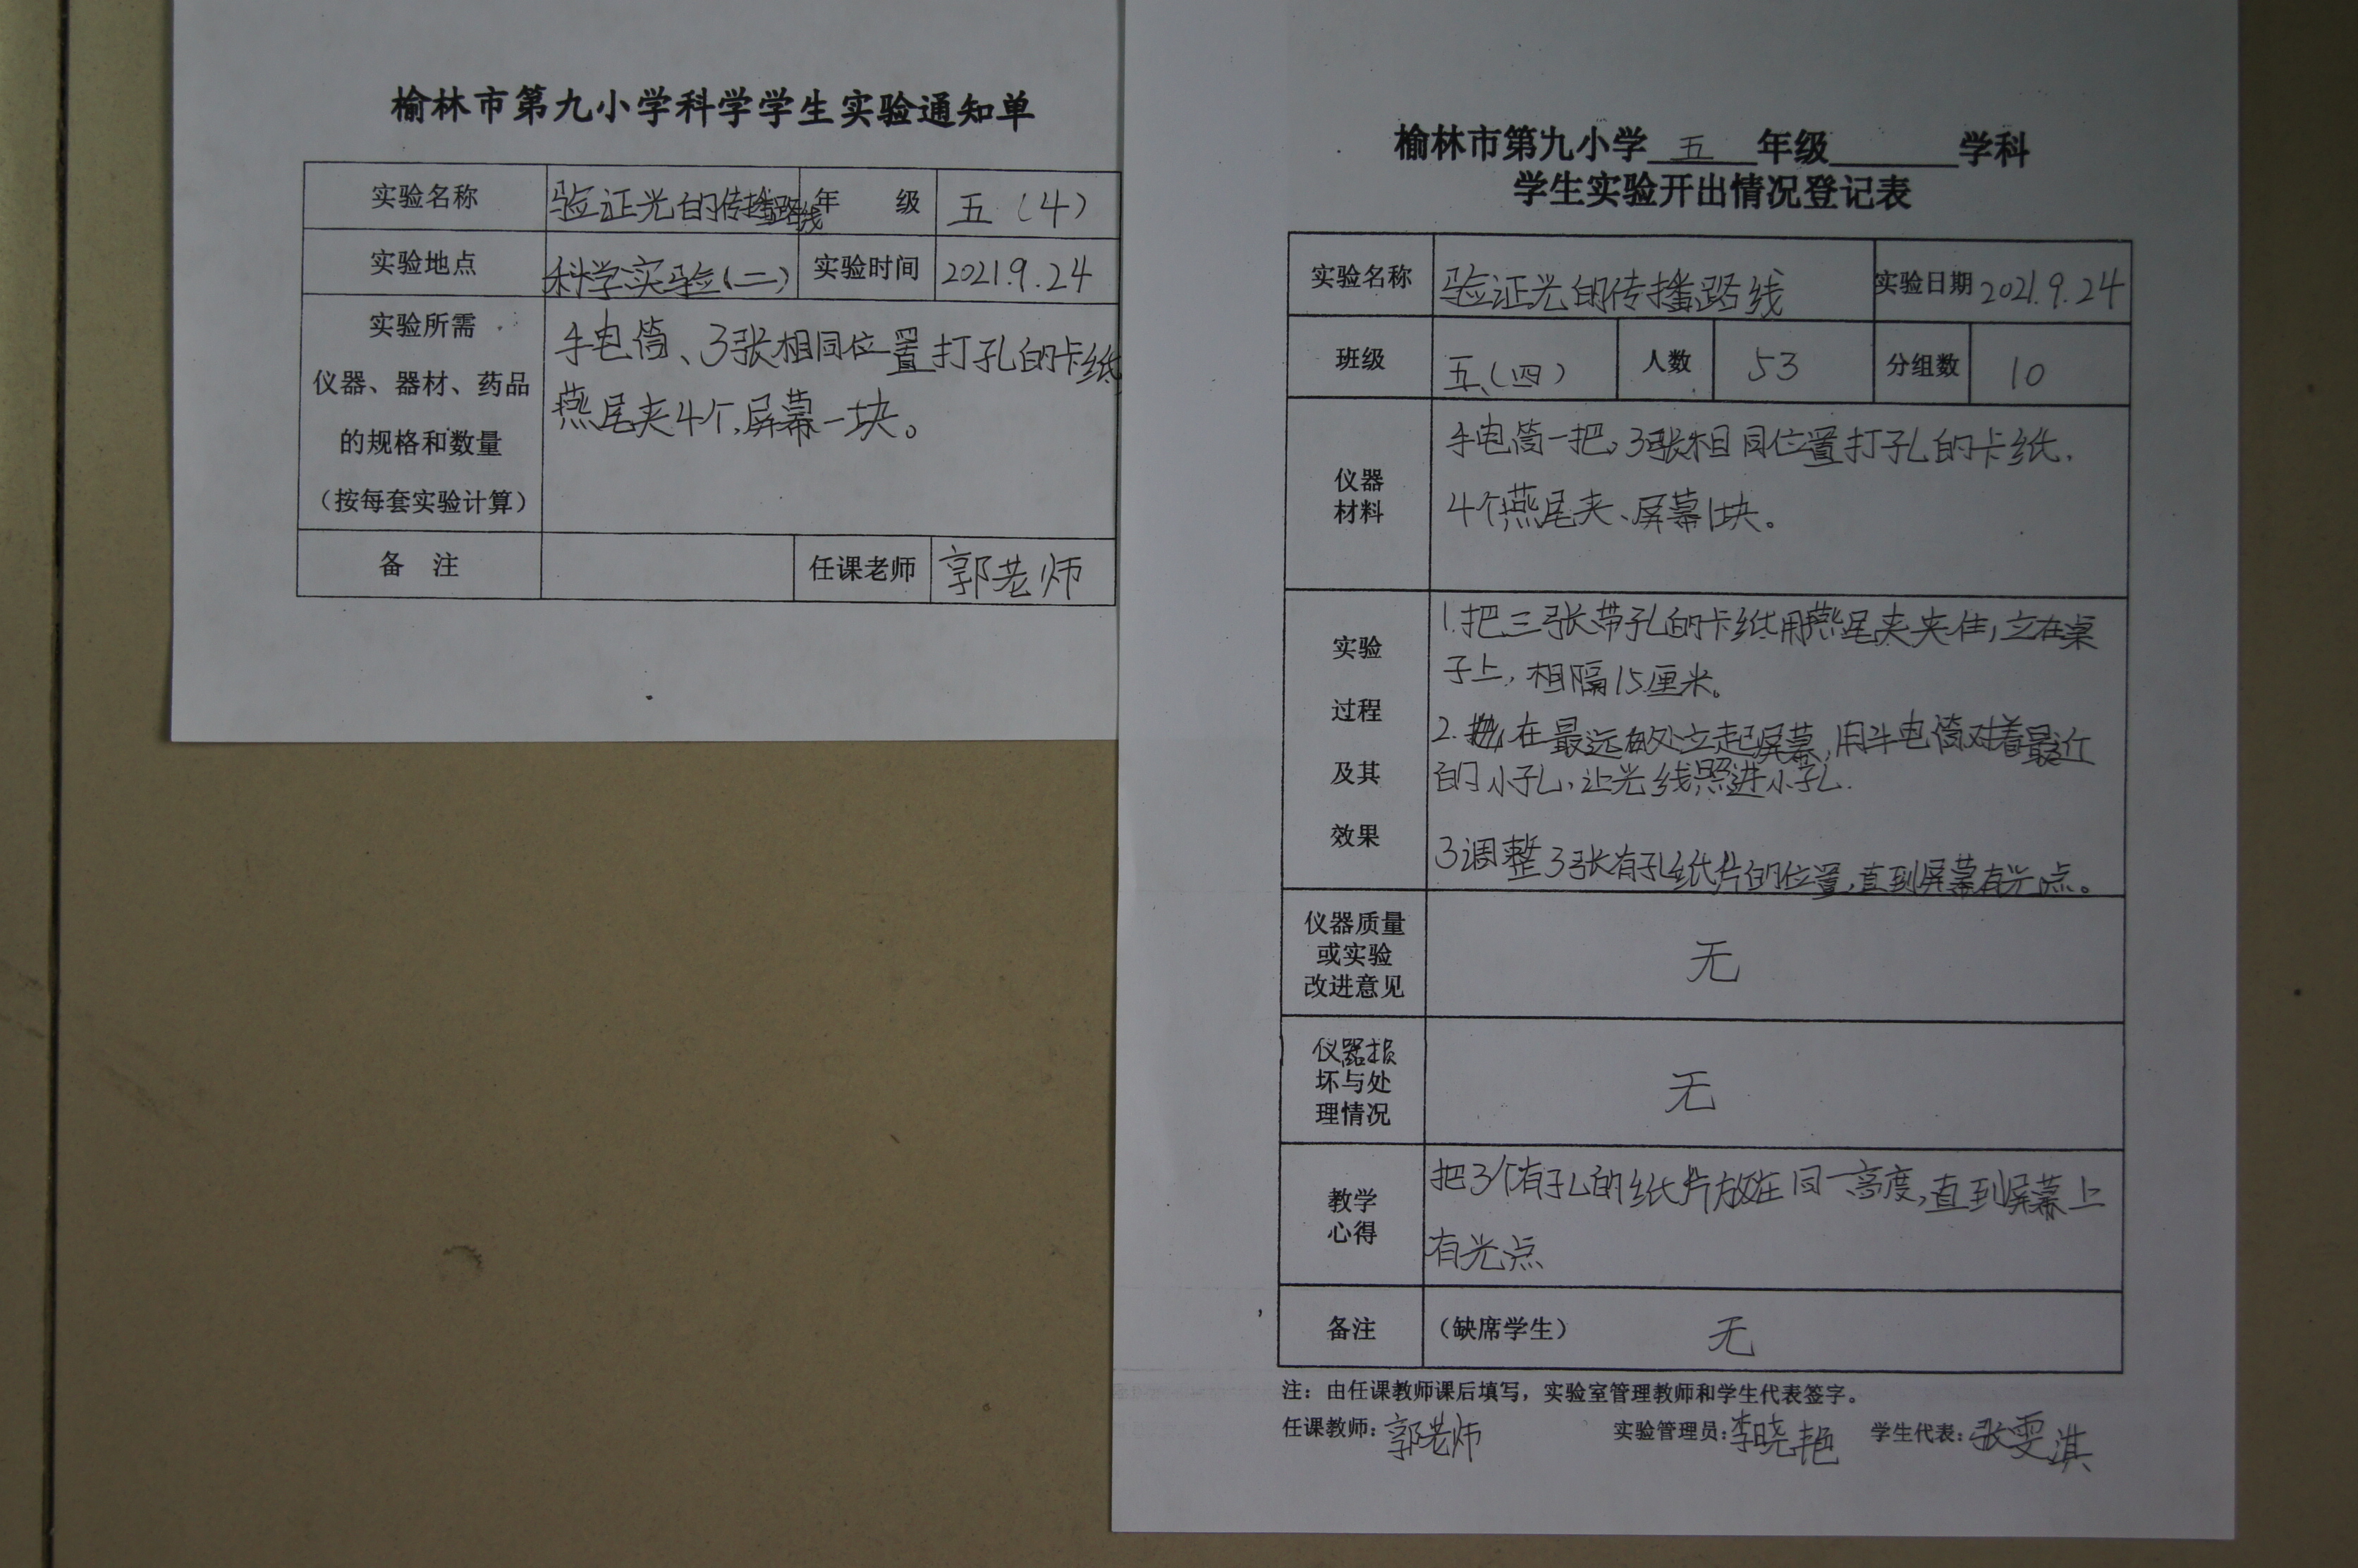 榆林市第九小学科学学生实验通知单
实验名称 验证光的传播路线 年 级 五（4）
实验地点 科学实验（二） 实验时间 2021.9.24
实验所需
仪器、器材、药品
的规格和数量
（按每套实验计算）
手电筒、3张相同位置打孔的卡纸
燕尾夹4个,屏幕一块。
备 注 任课老师 郭老师
榆林市第九小学 五 年级 学科
学生实验开出情况登记表
实验名称 验证光的传播路线 实验日期 2021.9.24
班级 五（四） 人数 53 分组数 10
仪器
材料
手电筒一把，3张相同位置打孔的卡纸.
4个燕尾夹、屏幕1块。
实验
过程
及其
效果
1.把三张带孔的卡纸用燕尾夹夹住，立在桌
子上，相隔15厘米。
2.在最远的处立起屏幕,用手电筒对着最近
的小孔，让光线照进小孔.
3调整3张有孔纸片的位置,直到屏幕有光点。
仪器质量
或实验
改进意见
无
仪器损
坏与处
理情况
无
教学
心得
把3个有孔的纸片放在同一高度,直到屏幕上
有光点
备注 （缺席学生） 无
注：由任课教师课后填写，实验室管理教师和学生代表签字。
任课教师：郭老师 实验管理员：李晓艳 学生代表：张雯淇